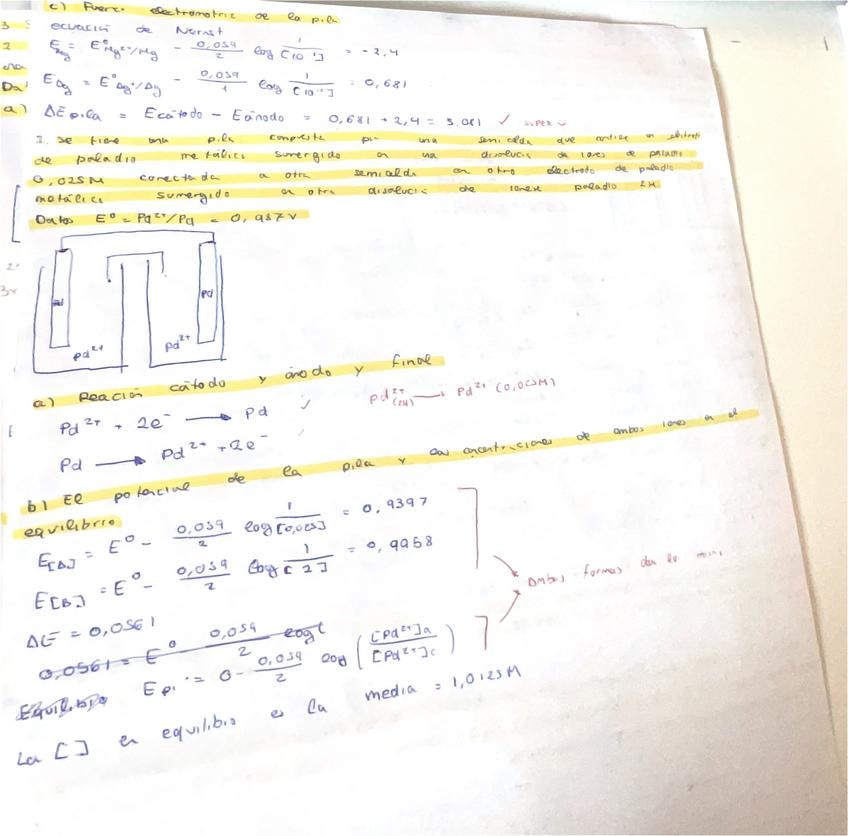 c) Fuerza electromotriz de la pila
ecuación de Nernst
E Mg = E° Mg²⁺/Mg - 0,059/2 log 1/[10⁻¹] = -2,4
E Ag = E° Ag⁺/Ag - 0,059/1 log 1/[10⁻¹] = 0,681
a) ΔE pila = E cátodo - E ánodo = 0,681 + 2,4 = 3,081 ✓ super
2. Se tiene una pila compuesta por una semicelda que contiene un
de paladio metálico sumergido en una disolución de iones de paladio
0,025M conectada a otra semicelda con otro electrodo de paladio
metálico sumergido en otra disolución de iones paladio 2M
Datos E° = Pd²⁺/Pd = 0,937V
Pd
Pd²⁺ Pd²⁺
a) Reación cátodo y ánodo y final
Pd²⁺ + 2e⁻ → Pd ✓
Pd²⁺ (2M) → Pd²⁺ (0,025M)
Pd → Pd²⁺ + 2e⁻
b) El potencial de la pila y las concentraciones de ambos iones en el
equilibrio
E[A] = E° - 0,059/2 log 1/[0,025] = 0,9397
E[B] = E° - 0,059/2 log 1/[2] = 0,9958
Ambas formas dan lo
ΔE = 0,0561
0,0561 = E° 0,059/2 log
Equilibrio E pi = 0 - 0,059/2 log ([Pd²⁺]a/[Pd²⁺]c)
La [ ] en equilibrio es la media = 1,0125M